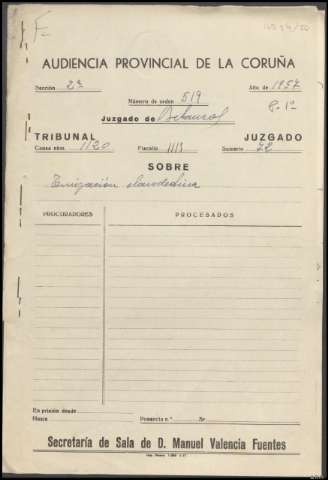 AUDIENCIA PROVINCIAL DE LA CORUÑA
Sección 2ª Año de 1957
Número de orden 519
Juzgado de Betanzos
TRIBUNAL JUZGADO
Causa núm. 1120 Fiscalía 1113 Sumario 72
SOBRE
Emigración clandestina
PROCURADORES PROCESADOS
En prisión desde
Hasta Ponencia n.º Sr.
Secretaría de Sala de D. Manuel Valencia Fuentes